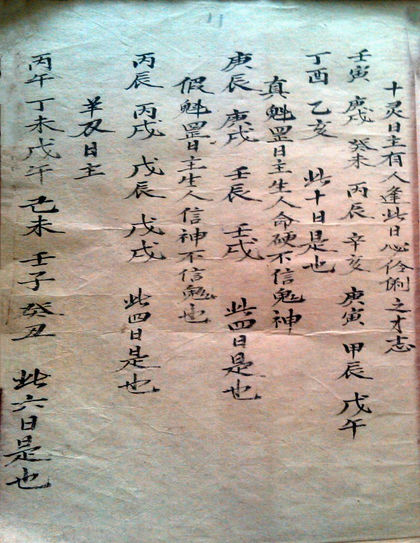 十灵日主有人逢此日心伶俐之才志
壬寅 庚戌 癸未 丙辰 辛亥 庚寅 甲辰 戊午
丁酉 乙亥 此十日是也
真魁罡日主生人命硬不信鬼神
庚辰 庚戌 壬辰 壬戌 此四日是也
假魁罡日主生人信神不信鬼也
丙辰 丙戌 戊辰 戊戌 此四日是也
羊刄日主
丙午 丁未 戊午 己未 壬子 癸丑 此六日是也